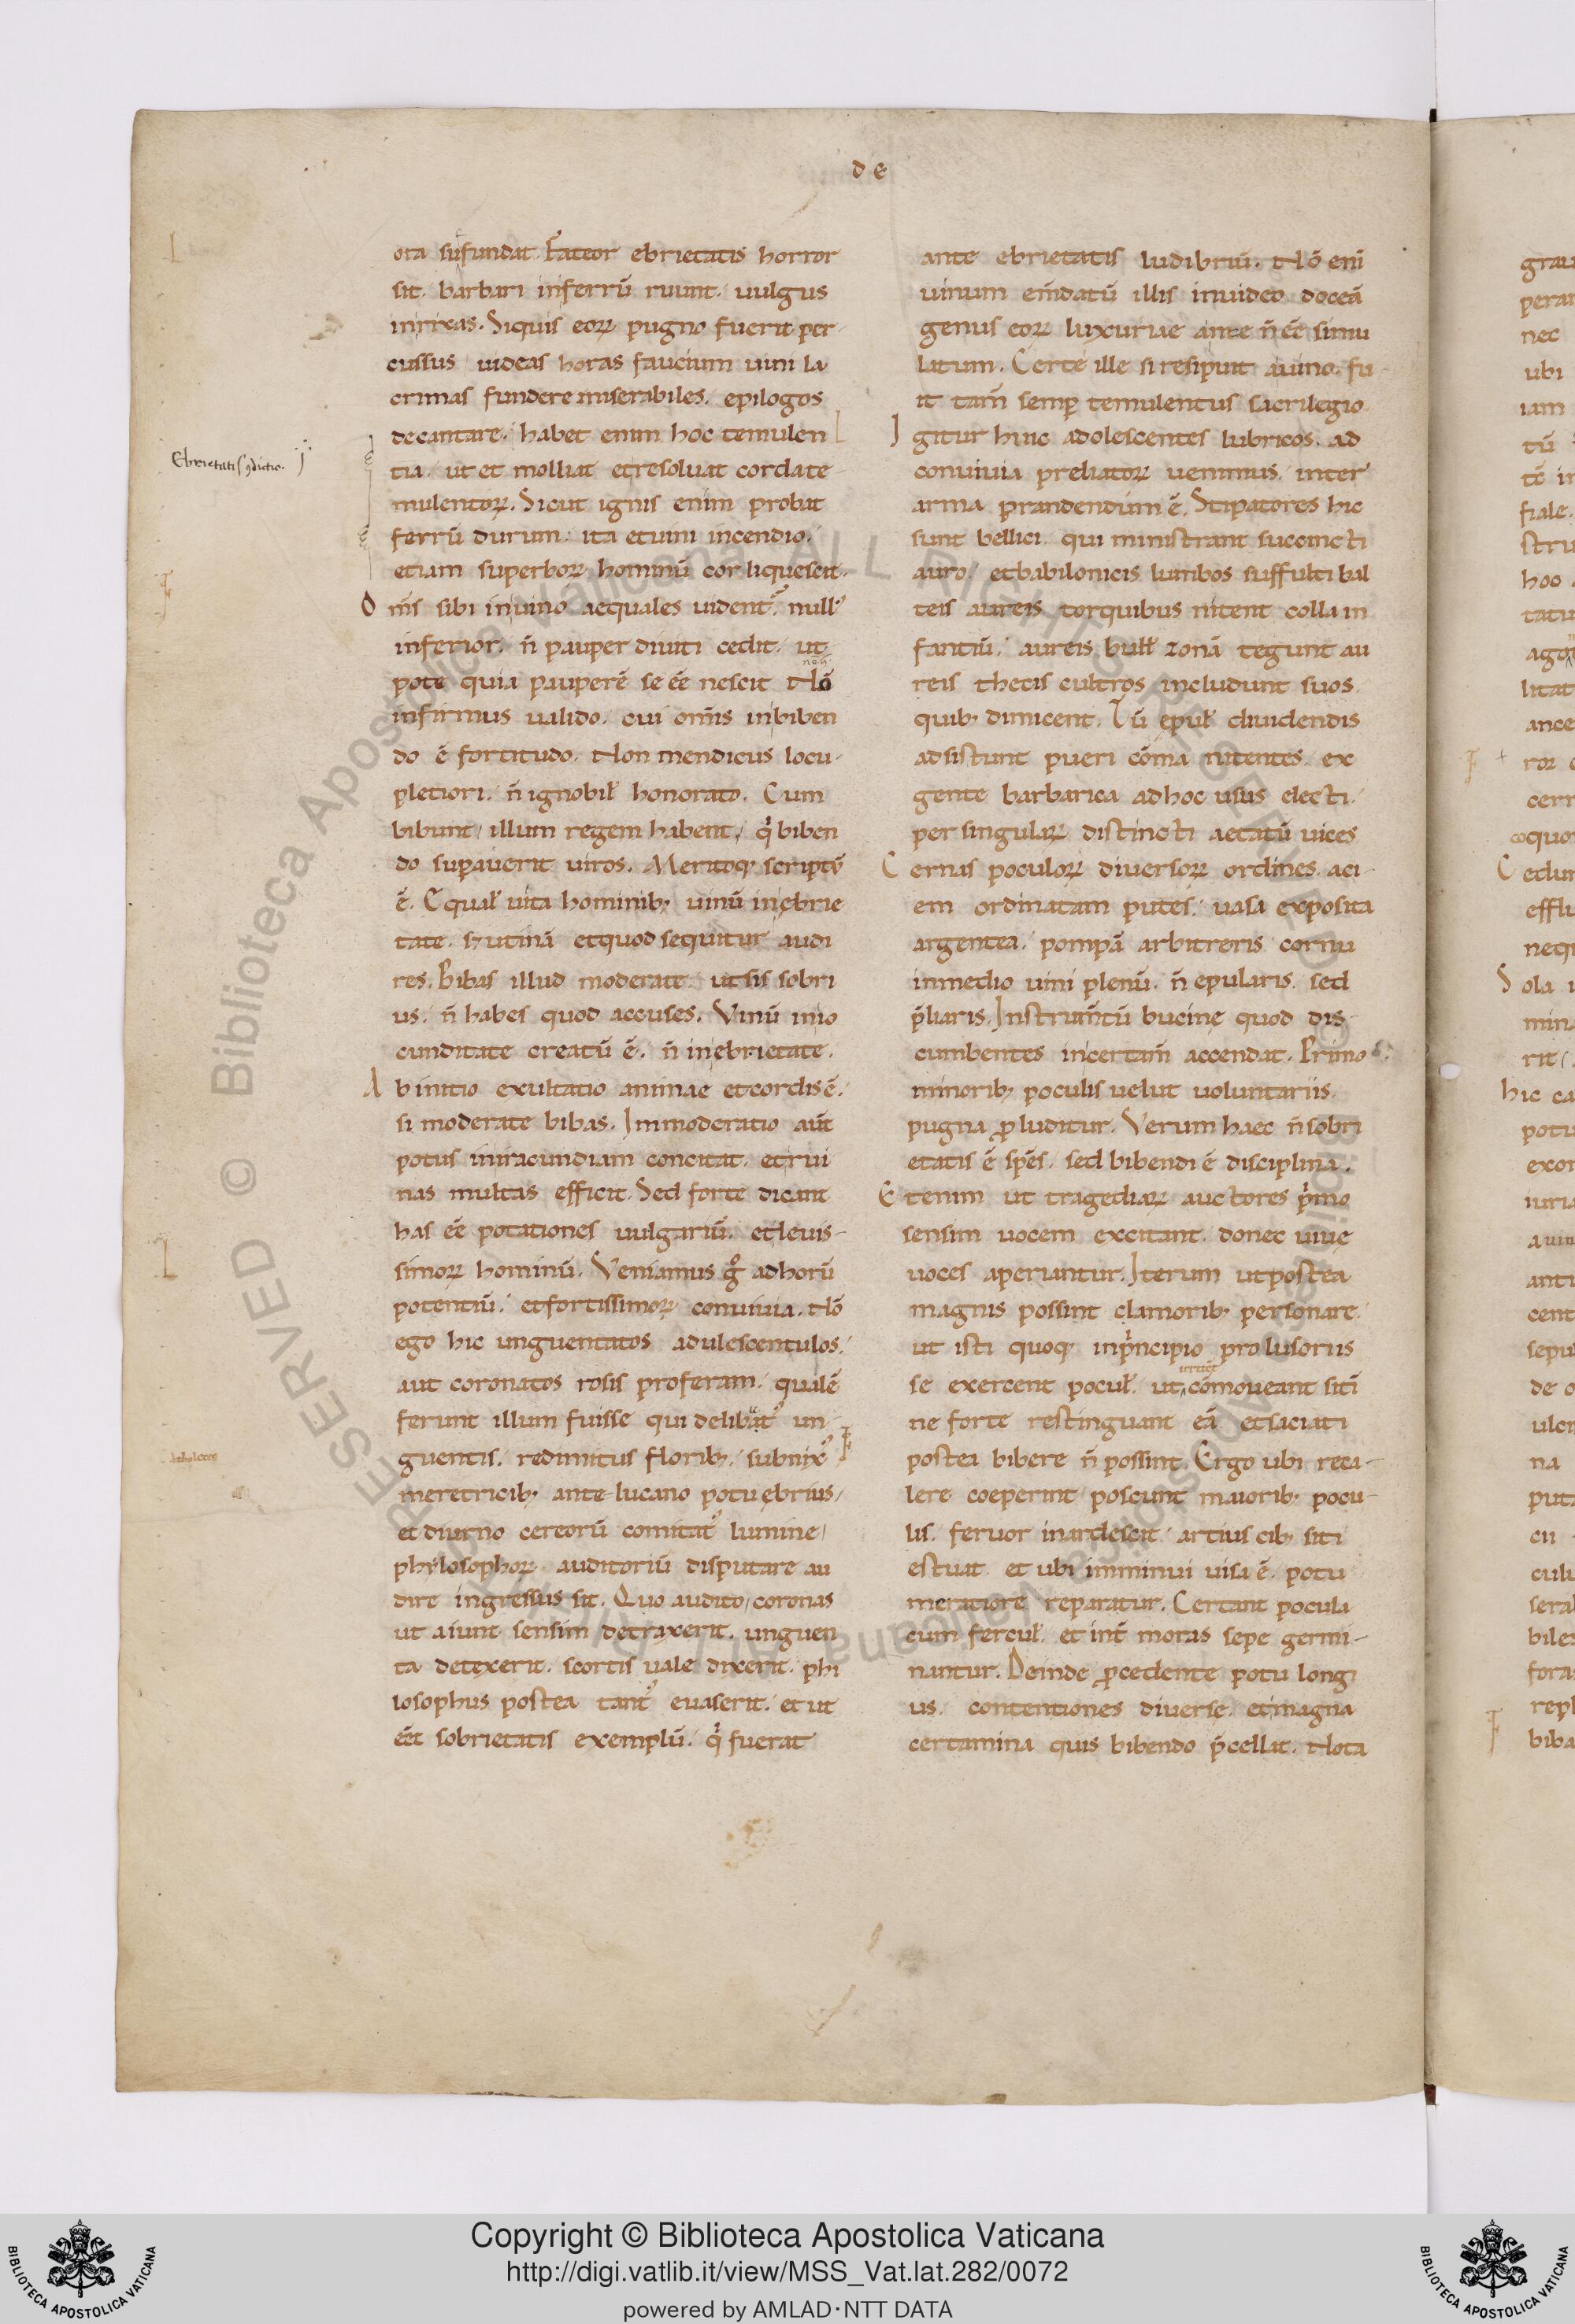 de
ora suffundat. Fateor ebrietatis horror
sit. barbari inferrū ruunt. uulgus
inrixas. Siquis eoꝝ pugno fuerit per
cussus uideas horas faucium uini la
crimas fundere miserabiles. epilogos
decantare. habet enim hoc temulen
Ebrietatis ꝯdictio.
tia. ut et molliat et resoluat corda te
mulentoꝝ. Sicut ignis enim probat
ferrū durum. ita et uini incendio.
etiam superboꝝ hominū cor liquescit.
Om̄s sibi inuino aequales uident᷒. null᷒
inferior. n̄ pauper diuiti cedit. ut
pote quia pauperē se eē nescit Nō
infirmus ualido. cui om̄is inbiben
do ē fortitudo. Non mendicus locu-
pletiori. n̄ ignobil̄ honorato. Cum
bibunt, illum regem habent, q̇ biben
do supauerit uiros. Meritoq; scriptū
ē. Equal̄ uita hominib; uinū inębrie
tate. s; utinā et quod sequitur audi
res. Bibas illud moderate. ut sis sobri
us. n̄ habes quod accuses. Vinū inio
cunditate creatū ē. n̄ inebrietate.
Ab initio exultatio animae et cordis ē.
si moderate bibas. Immoderatio aut̄
potus iniracundiam concitat. et rui
nas multas efficit. Sed forte dicant
has eē potationes uulgariū. et leuis-
simoꝝ hominū. Veniamus g̊ ad horū
potentiū. et fortissimoꝝ conuiuia. Nō
ego hic unguentatos adulescentulos.
aut coronatos rosis proferam. qualē
ferunt illum fuisse qui delibut᷒ un-
guentis. redimitus florib;. subnix᷒
meretricib; ante lucano potu ębrius,
et diurno cereorū comitat᷒ lumine,
phylosophoꝝ auditoriū disputare au
dire ingressus sit. Quo audito, coronas
ut aiunt sensim detraxerit. unguen
ta detexerit. scortis uale dixerit. phi
losophus postea tant᷒ euaserit. et ut
eēt sobrietatis exemplū. q̇ fuerat
ante ebrietatis ludibriū. Nō eni
uinum em̄datū illis inuideo doceā
genus eoꝝ luxuriae ante n̄ eē simu
latum. Certe ille si resipuit auino. fu
it tam̄ semp temulentus sacrilegio.
Igitur hinc adolescentes lubricos. ad
conuiuia preliatoꝝ uenimus. inter
arma prandendum ē. Stipatores hic
sunt bellici. qui ministrant succincti
auro. et babilonicis lumbos suffulti bal
teis aureis torquibus nitent colla in
fantiū. aureis bull̄ zonā tegunt au
reis thecis cultros includunt suos.
quib; dimicent. Tū epul̄ diuidendis
adsistunt pueri cōma nitentes. ex
gente barbarica ad hoc usus electi.
per singulaꝝ distincti aetatū uices
Cernis poculoꝝ diuersoꝝ ordines. aci-
em ordinatam putes. uasa exposita
argentea. pompā arbitreris cornu
inmedio uini plenū. n̄ epularis. sed
p̄liaris. Instrum̄tū bucine quod dis-
cumbentes incertam̄ accendat. Primo
minorib; poculis uelut uoluntariis.
pugna ꝓluditur. Verum haec n̄ sobri
etatis ē spēs. sed bibendi ē disciplina.
Etenim ut tragediaꝝ auctores p̓mo
sensim uocem excitant. donec uiuę
uoces aperiantur. Iterum ut postea
magnis possint clamorib; personare.
ut isti quoq; inp̓ncipio prolusoriis
se exercent pocul̄. ut cōmoueant sitī
ne forte restinguant eā. et saciati
postea bibere n̄ possint. Ergo ubi reca-
lere coeperint poscunt maiorib; pocu-
lis. feruor inardescit. artius cib; siti
estuat. et ubi imminui uisa ē. potu
meratiore reparatur. Certant pocula
cum fercul̄. et int̄ moras sepe germi-
nantur. Deinde ꝓcedente potu longi
us. contentiones diuerse. et magna
certamina quis bibendo p̄cellat. Nota
Copyright © Biblioteca Apostolica Vaticana
http://digi.vatlib.it/view/MSS_Vat.lat.282/0072
powered by AMLAD·NTT DATA